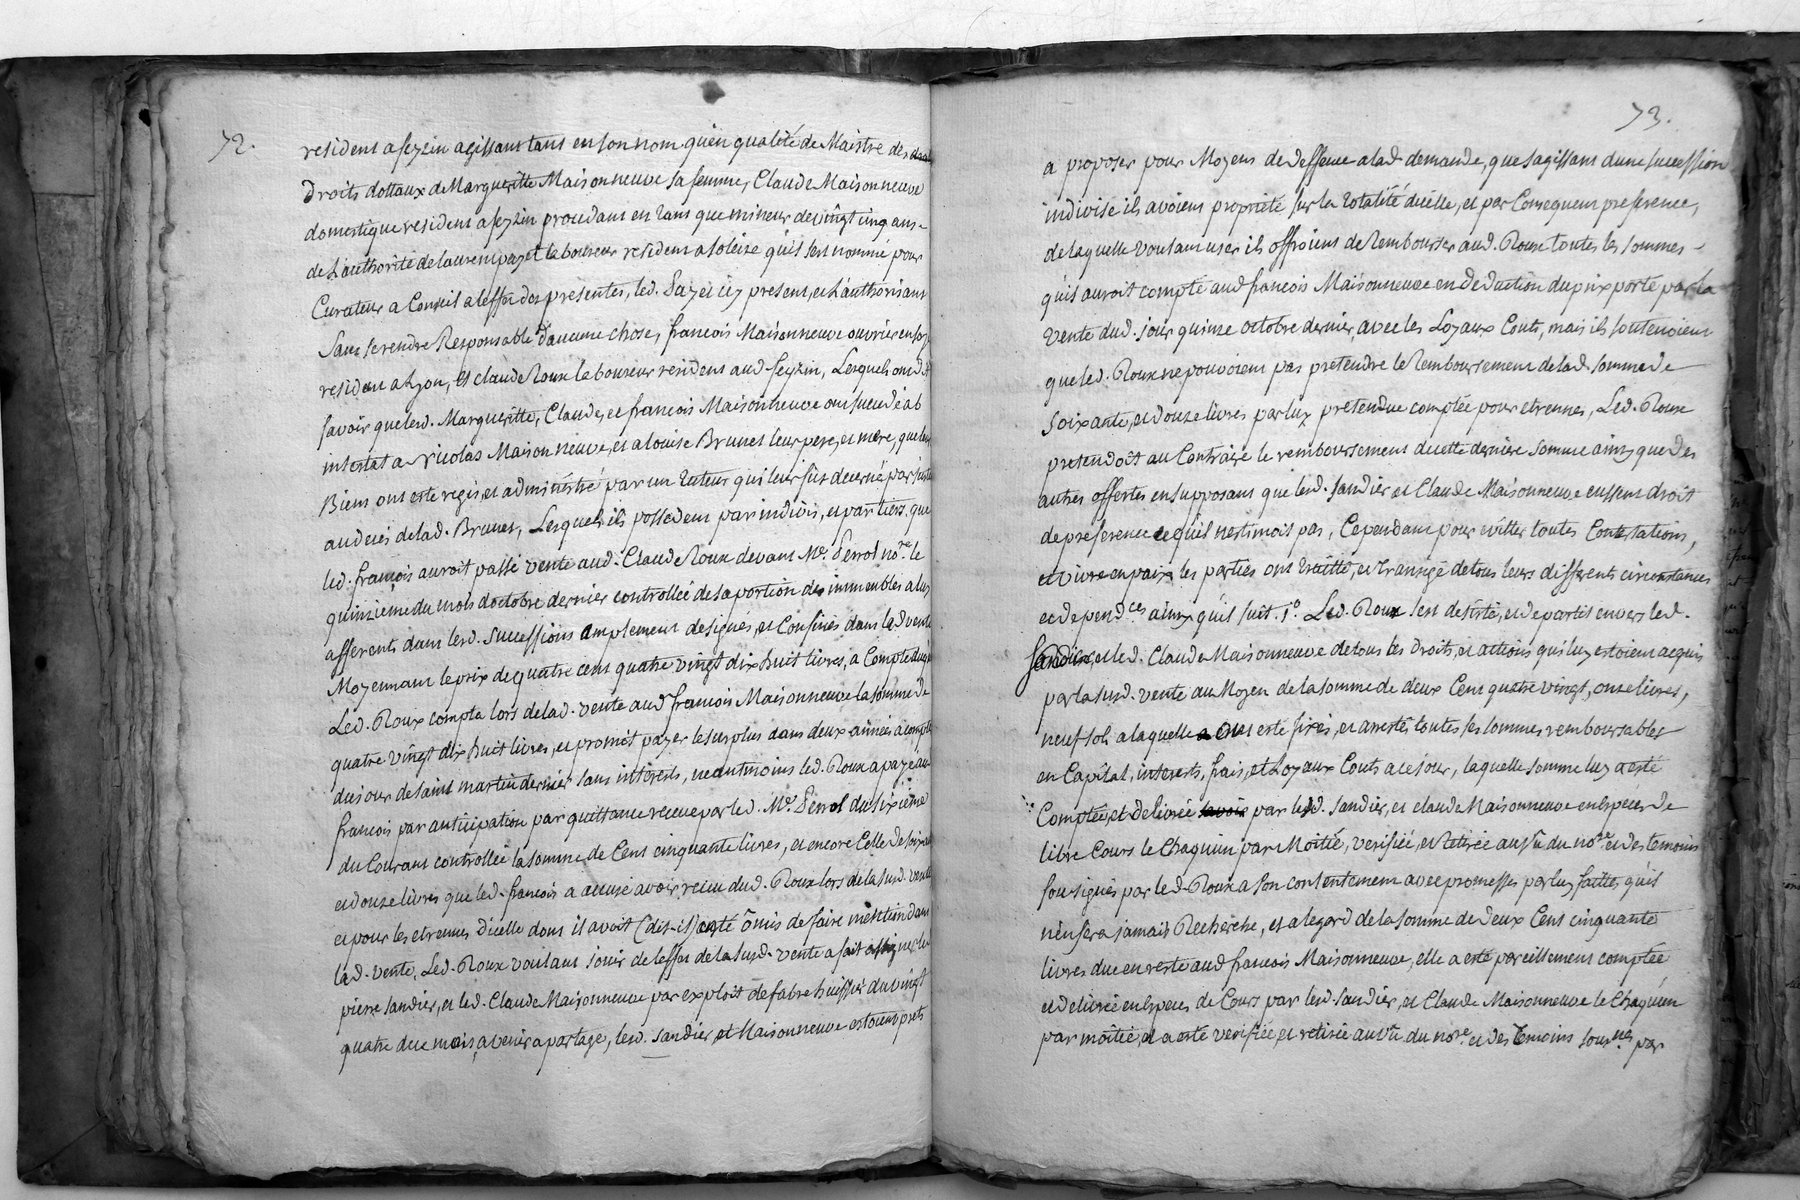 72.
resident a feyzin agissant tant en son nom qu'en qualité de Maistre des
Droits dottaux de Margueritte Maisonneuve sa femme, Claude Maisonneuve
domestique resident a feyzin procedant en tant que mineur de vingt cinq ans
de L'authorité de laurent payet laboureur resident a soleize qu'il s'est nommé pour
Curateur a Conseil a leffet des presentes, led. Payet icy present, et L'authorisant
Sans se rendre Responsable d'aucune chose, françois Maisonneuve ouvrier en soye
resident a Lyon, et claude Roux laboureur resident aud. feyzin, Lesquels ont dit
savoir que lesd. Margueritte, Claude, et françois Maisonneuve ont succedé ab
intestat a Nicolas Maisonneuve, et a louise Brunet leur pere, et mere, que leurs
Biens ont esté regis, et administré par un tuteur qui leur fut decerné par justice
au deces de lad. Brunet, Lesquels ils possedent par indivis, et par tiers, que
led. françois auroit passé vente aud. Claude Roux devant Me. Perrol nore. le
quinzieme du mois doctobre dernier controllée de sa portion des immeubles a luy
afferents dans lesd. successions amplement designés, et Confinés dans lad vente
Moyennant le prix de quatre cent quatre vingt dix huit livres, a Compte duquel
Led. Roux compta lors de lad. vente aud françois Maisonneuve la somme de
quatre vingt dix huit livres, et promit payer le surplus dans deux années a compter
du jour de saint martin dernier sans intérests, neantmoins led. Roux a payé aud
francois par anticipation par quittance receue par led. Me. Perrol du sixième
du Courant controllée la somme de Cent cinquante livres, et encore Celle de soixante
et douze livres que led. françois a accusé avoir receu dud. Roux lors de la susd. vente
et pour les etrennes dicelle dont il avoit (dit-il) esté ômis de faire mention dans
lad. vente, Led. Roux voulant jouir de leffet de la susd. vente a fait assigner led
pierre sandier, et led. Claude Maisonneuve par exploit de fabre huissier du vingt
quatre du mois, a venir a partage, lesd. sandier, et Maisonneuve estoient prets
73.
a proposer pour Moyens de deffence a lad demande, que sagissant dune succession
indivise ils avoient proprieté sur la totalité dicelle, et par Consequent preference,
de laquelle voulant user ils offroient de Rembourser aud. Roux toutes les sommes
qu'il auroit compté aud françois Maisonneuve en deduction du prix porté par la
vente dud. jour quinze octobre dernier, avec les Loyaux Couts, mais ils soutenoient
que led. Roux ne pouvoient pas pretendre le Remboursement de lad. somme de
soixante, et douze livres par luy pretendue comptée pour etrennes, Led. Roux
pretendoit au Contraire le remboursement de cette derniere somme ainsy que des
autres offertes en supposant que lesd. sandier et Claude Maisonneuve eussent droit
de preference ce qu'il n'estimoit pas, Cependant pour eviter toutes Contestations,
et vivre en paix, les parties ont traitté, et transigé de tous leurs differents circonstances
et dependces. ainsy qu'il suit. 1o. Led. Roux s'est desisté, et departit envers led.
sandier, et led. Claude Maisonneuve de tous les droits, et actions qui luy estoient acquis
par la susd. vente au Moyen de la somme de deux Cent quatre vingt, onze livres,
neuf sols a laquelle ont esté fixés, et arrestés toutes les sommes remboursables
en Capital, interests, frais, et Loyaux Couts a ce jour, laquelle somme luy a esté
Comptée, et delivrée par lesd. sandier, et claude Maisonneuve en Especes de
libre Cours le Chaquun par Moitié, verifiée, et Retirée au vû du nore. et des temoins
sousignés par led. Roux a son contentement avec promesses par luy faittes qu'il
n'en sera jamais Recherché, et a legard de la somme de deux Cent cinquante
livres due en reste aud francois Maisonneuve, elle a esté pareillement comptée
et delivrée en Especes de Cours par lesd. sandier, et Claude Maisonneuve le Chaquun
par moitié, et a esté verifiée, et retirée au vû du nore. et des temoins sousnés par